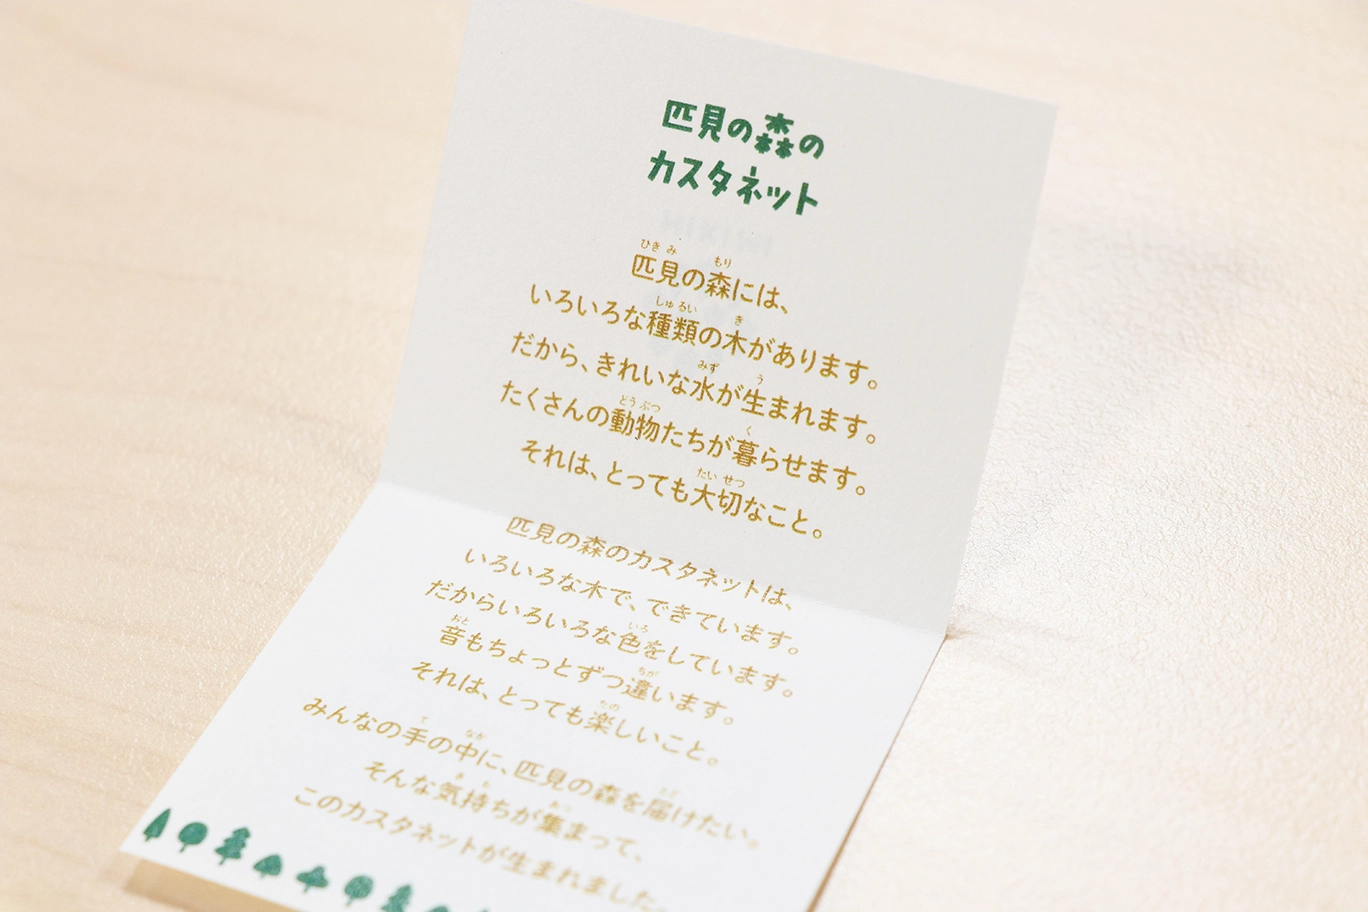 匹見の森の
カスタネット
匹見の森には、
いろいろな種類の木があります。
だから、きれいな水が生まれます。
たくさんの動物たちが暮らせます。
それは、とっても大切なこと。
匹見の森のカスタネットは、
いろいろな木で、できています。
だからいろいろな色をしています。
音もちょっとずつ違います。
それは、とっても楽しいこと。
みんなの手の中に、匹見の森を届けたい。
そんな気持ちが集まって、
このカスタネットが生まれました。